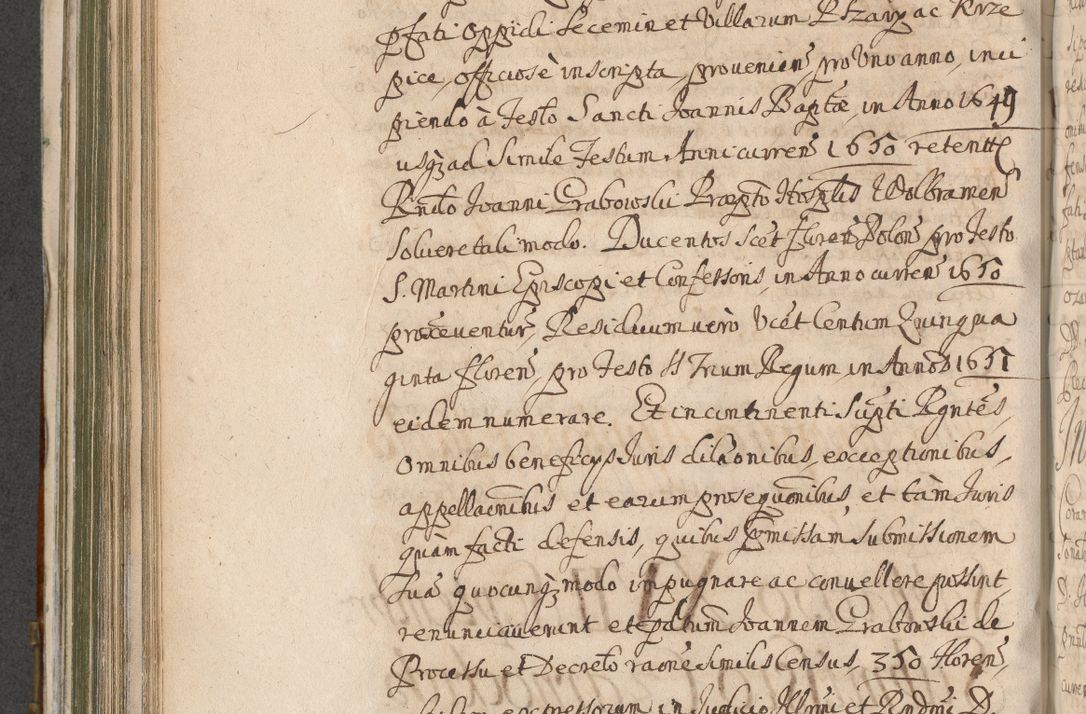 pfati Oppidi Secemin et Villarum Rzary ac Krze
pice, officiose inscripta, provenien, pro Uno anno, inci
piendo à Festo Sancti Joannis Baptæ, in Anno 1649
usq3 ad Simile Festum Anni curren 1650 retent
Rndo Joanni Grabowski Præpto Hosplis Wolbramen
Solvere tali modo. Ducentos Scet Floren Polon pro Festo
S. Martini Episcopi et Confessoris, in Anno curren 1650
proxe venturi, Residuum verò Vcet Centum Quinqua
ginta Floren, pro Festo SS Trium Regum, in Anno 1651
eidem numerare. Et in continenti Supti Rgntes,
Omnibus beneficys Juris dilaonibus, exceptionibus,
appellaonibus et earum prosequonibus et tàm Juris
quàm facti defensis, quibus pmissam submissionem
Suã quocunq3 modo impugnare ac convellere possint
renunciaverunt et pdtum Joannem Grabowski de
Processu et Decreto raone similis Census, 350 Floren,
expressorum in Judicio Illrmi et Rndmi D.